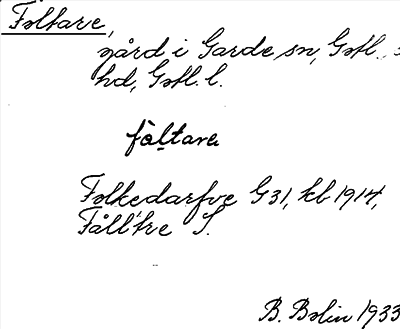 Foltare,
gård i Garde sn, Gotl. s
hd, Gotl. l.
fåltare
Folkedarfve G 31, kb 1914,
Fåll'tre S.
B. Bolin 1933